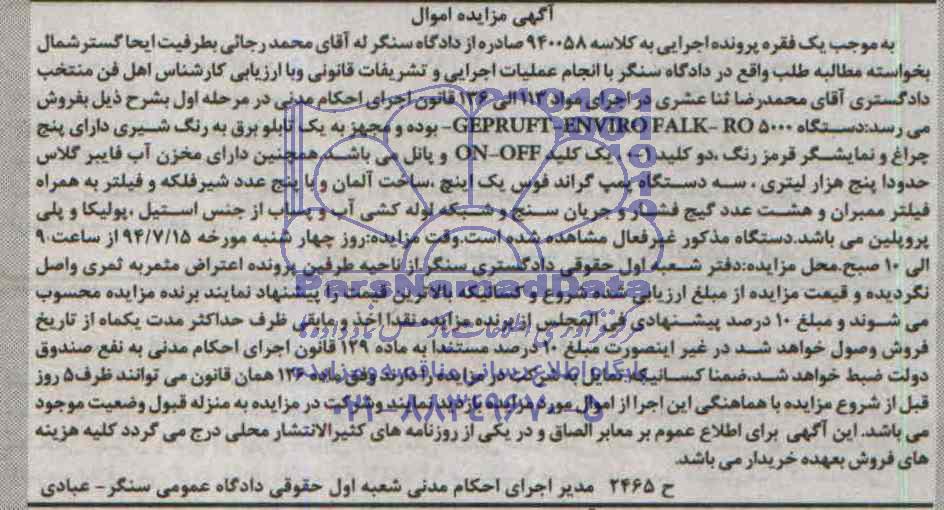 آگهی مزایده اموال
به موجب یک فقره پرونده اجرایی به کلاسه ۹۴۰۰۵۸ صادره از دادگاه سنگر له آقای محمد رجائی بطرفیت ایحا گستر شمال
بخواسته مطالبه طلب واقع در دادگاه سنگر با انجام عملیات اجرایی و تشریفات قانونی وبا ارزیابی کارشناس اهل فن منتخب
دادگستری آقای محمدرضا ثنا عشری در اجرای مواد ۱۱۳ الی ۱۳۶ قانون اجرای احکام مدنی در مرحله اول بشرح ذیل بفروش
می رسد:دستگاه GEPRUFT-ENVIRO FALK- RO ۵۰۰۰- بوده و مجهز به یک تابلو برق به رنگ شیری دارای پنج
چراغ و نمایشگر قرمز رنگ ،دو کلید ۱-۰ ، یک کلید ON-OFF و پانل می باشد.همچنین دارای مخزن آب فایبر گلاس
حدودا پنج هزار لیتری ، سه دستگاه پمپ گراند فوس یک اینچ ،ساخت آلمان و با پنج عدد شیرفلکه و فیلتر به همراه
فیلتر ممبران و هشت عدد گیج فشار و جریان سنج و شبکه لوله کشی آب و پساب از جنس استیل ،پولیکا و پلی
پروپلین می باشد.دستگاه مذکور غیرفعال مشاهده شده است.وقت مزایده:روز چهار شنبه مورخه ۹۴/۷/۱۵ از ساعت ۹
الی ۱۰ صبح.محل مزایده:دفتر شعبه اول حقوقی دادگستری سنگر.از ناحیه طرفین پرونده اعتراض مثمربه ثمری واصل
نگردیده و قیمت مزایده از مبلغ ارزیابی شده شروع و کسانیکه بالاترین قیمت را پیشنهاد نمایند برنده مزایده محسوب
می شوند و مبلغ ۱۰ درصد پیشنهادی فی المجلس از برنده مزایده نقدا اخذ و مابقی ظرف حداکثر مدت یکماه از تاریخ
فروش وصول خواهد شد در غیر اینصورت مبلغ ۱۰ درصد مستندا به ماده ۱۲۹ قانون اجرای احکام مدنی به نفع صندوق
دولت ضبط خواهد شد.ضمنا کسانیکه تمایل به شرکت در مزایده را دارند وفق ماده ۱۲۶ همان قانون می توانند ظرف ۵ روز
قبل از شروع مزایده با هماهنگی این اجرا از اموال مورد مزایده بازدید نمایند و شرکت در مزایده به منزله قبول وضعیت موجود
می باشد. این آگهی برای اطلاع عموم بر معابر الصاق و در یکی از روزنامه های کثیرالانتشار محلی درج می گردد کلیه هزینه
های فروش بعهده خریدار می باشد.
ح ۲۴۶۵ مدیر اجرای احکام مدنی شعبه اول حقوقی دادگاه عمومی سنگر- عبادی
ParsNamadData
پایگاه اطلاع رسانی مناقصه و مزایده
۰۲۱-۸۸۳۴۹۶۷۰-۵